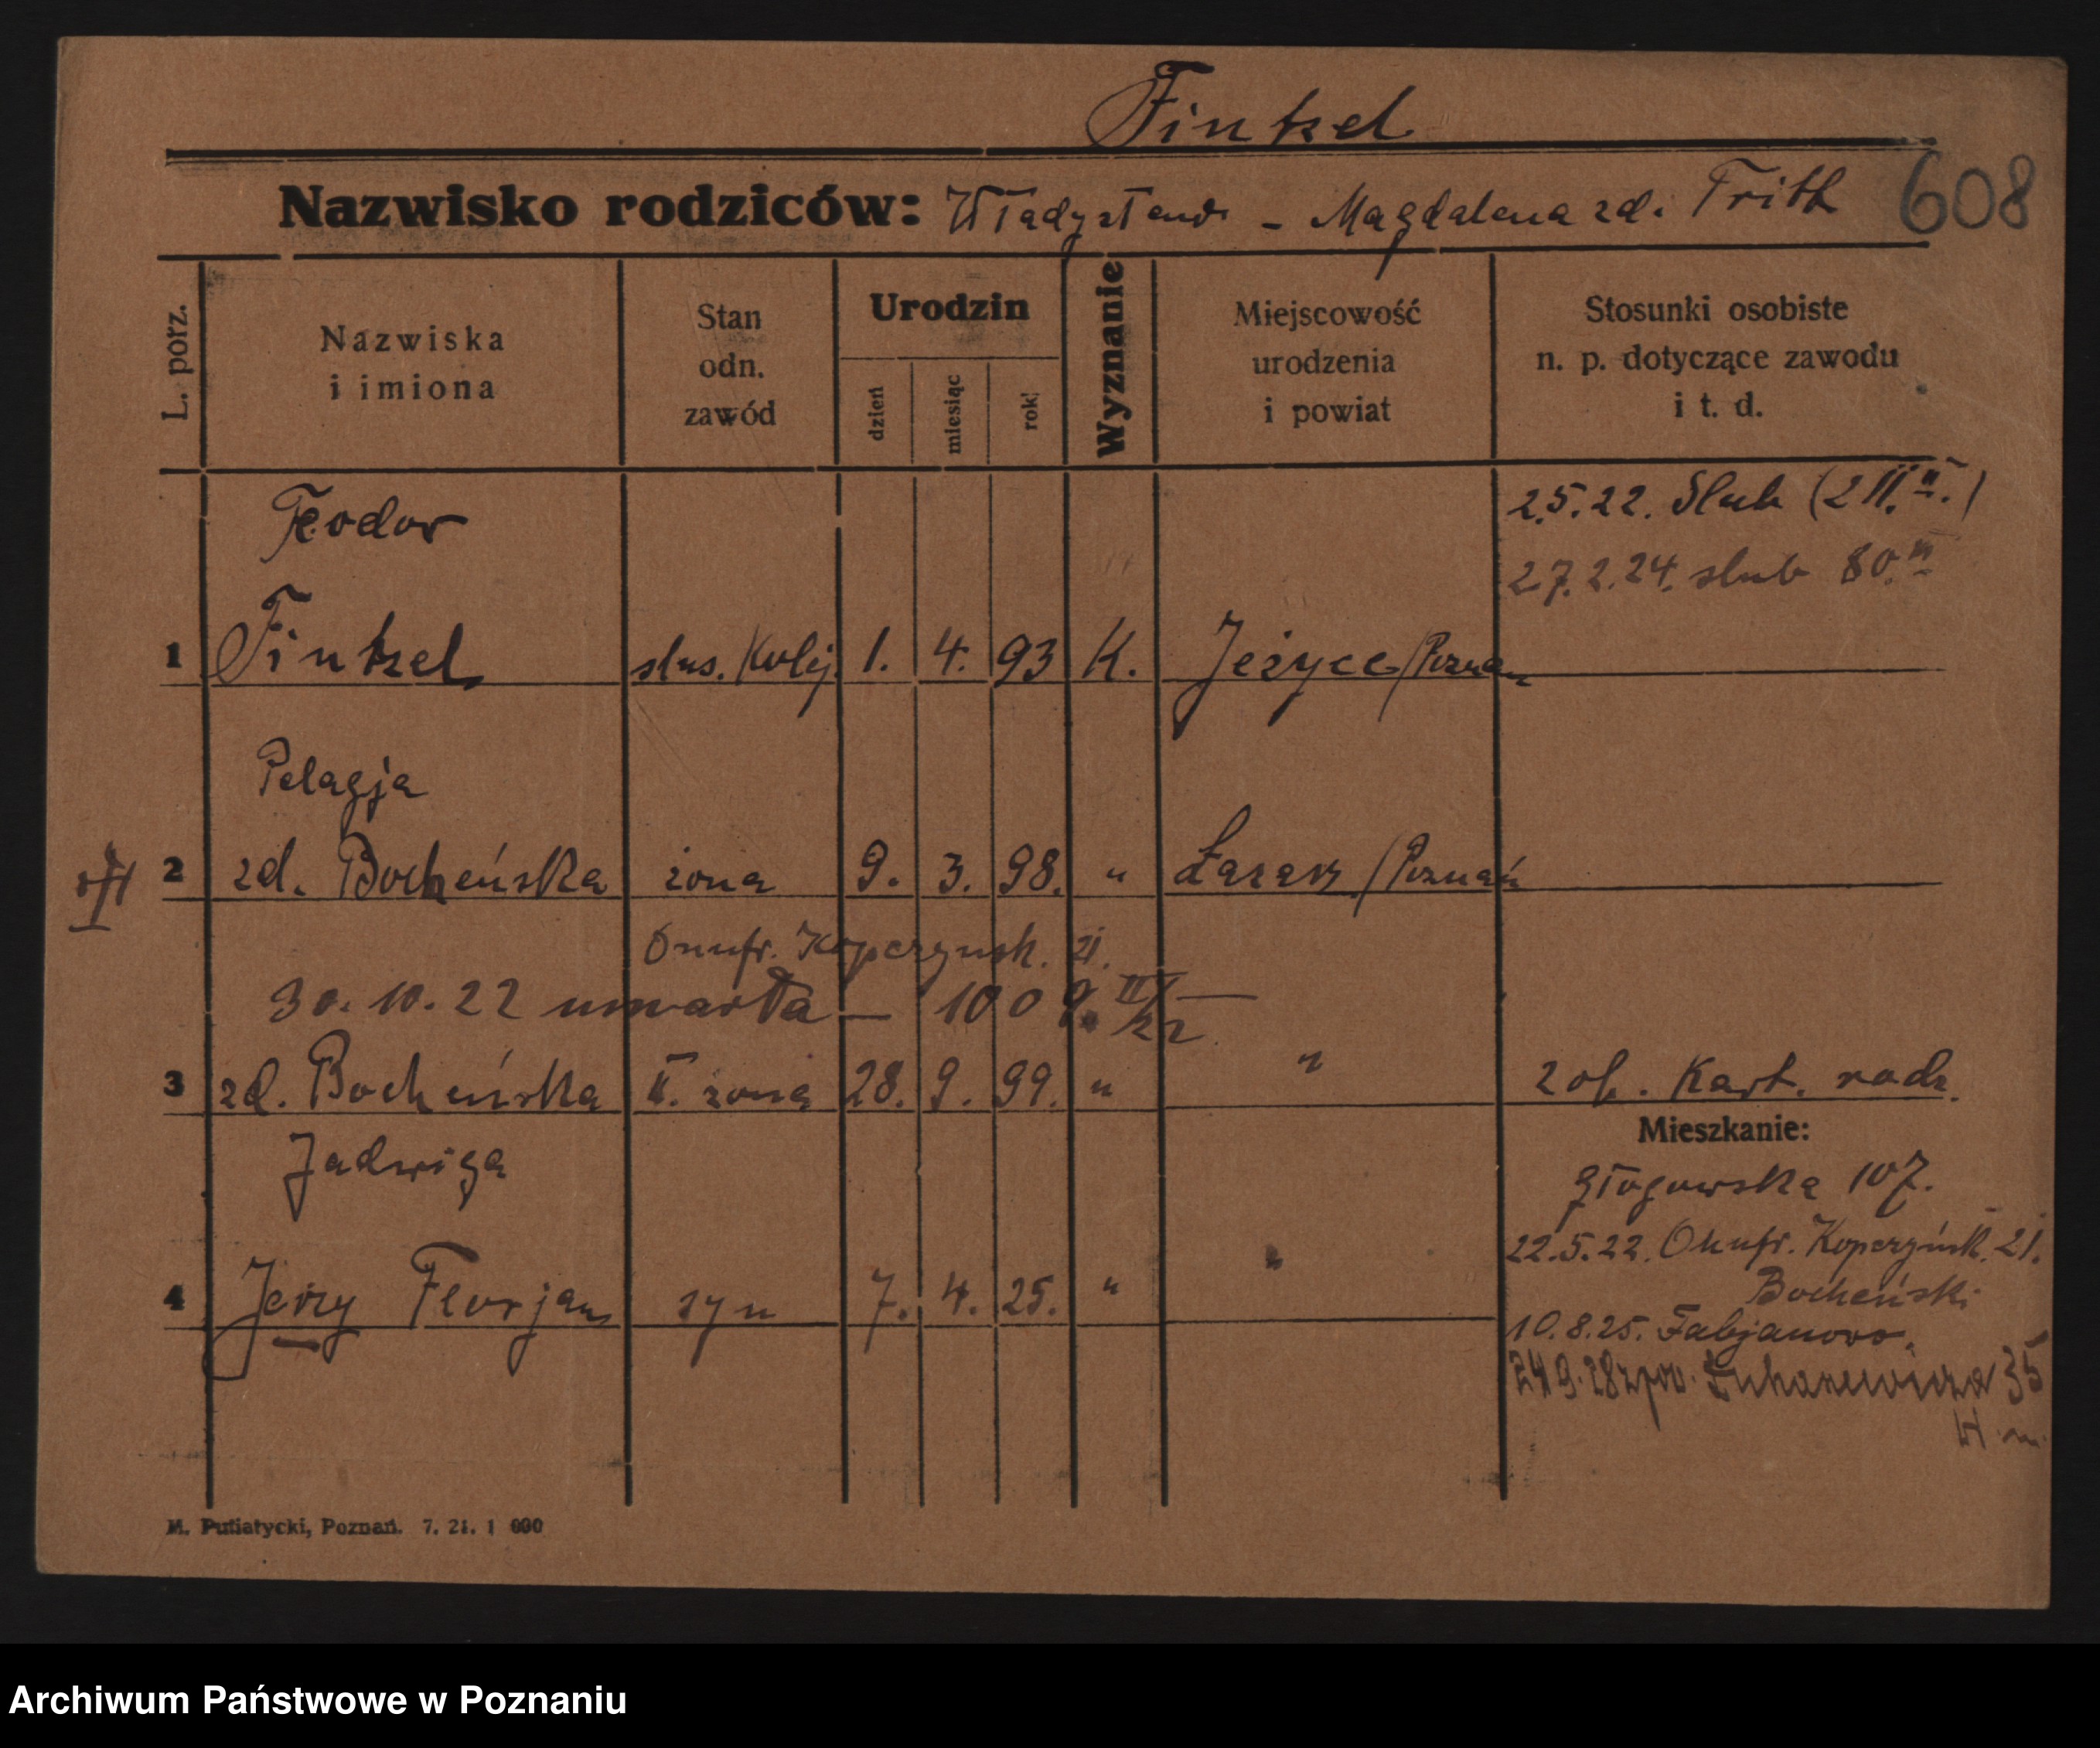 Finkel
Nazwisko rodziców: Władysław - Magdalena zd. Frith
608
L. porz.
Nazwiska
i imiona
Stan
odn.
zawód
Urodzin
dzień
miesiąc
rok
Wyznanie
Miejscowość
urodzenia
i powiat
Stosunki osobiste
n. p. dotyczące zawodu
i t. d.
2.5.22. Slub
27.2.24. slub 80
Teodor
1 Finkel slus. Kolej. 1. 4. 93 K. Jeżyce/Poznan
Pelagja
2 zd. Bocheńska żona 9. 3. 98. " Łazarz/Poznań
Onufr. Kopczynsk. 21.
30. 10. 22 umarła — 1009. II/22 —
3 zd. Bocheńska II. żona 28. 9. 99. " " zob. Kart. rodz.
Jadwiga
Mieszkanie:
Głogowska 107.
22.5.22. Onufr. Kopczyńsk. 21.
Bocheński
4 Jerzy Florjan syn 7. 4. 25. " "
10.8.25. Fabjanowo.
24 9. 28 35
M. Putiatycki, Poznań. 7. 21. 1 000
Archiwum Państwowe w Poznaniu